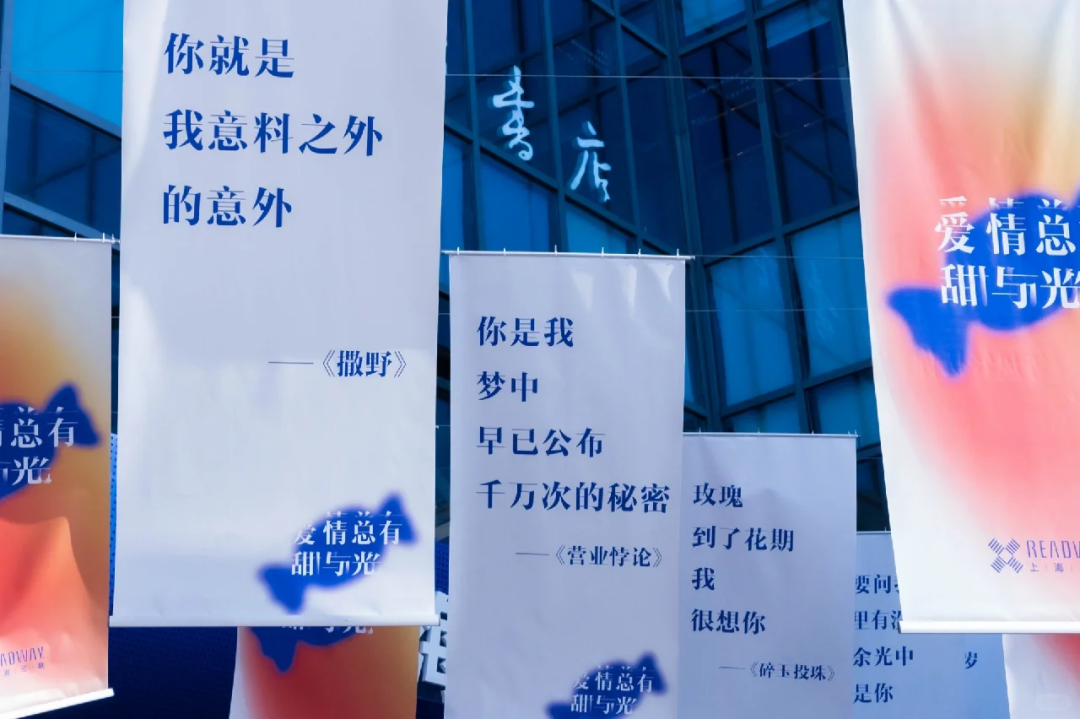 你就是
我意料之外
的意外
——《撒野》
爱情总有
甜与光
書店
你是我
梦中
早已公布
千万次的秘密
——《营业悖论》
爱情总有
甜与光
玫瑰
到了花期
我
很想你
——《碎玉投珠》
要问
里有
余光中
是你
岁
爱情总
甜与光
READW
上海
总有
与光
READWAY